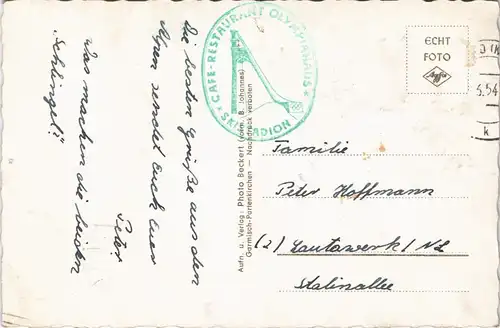 Die besten Grüße aus den
Alpen sendet Euch Euer
Peter.
Was machen die beiden
"Schlingel"?
CAFE-RESTAURANT OLYMPIAHAUS
SKISTADION
Aufn. u. Verlag: Photo Beckert (vorm. B. Johannes)
Garmisch-Partenkirchen – Nachdruck verboten
ECHT
FOTO
Agfa
5.54
k
Familie
Peter Hoffmann
(2) Lautawerk / NL
Stalinallee